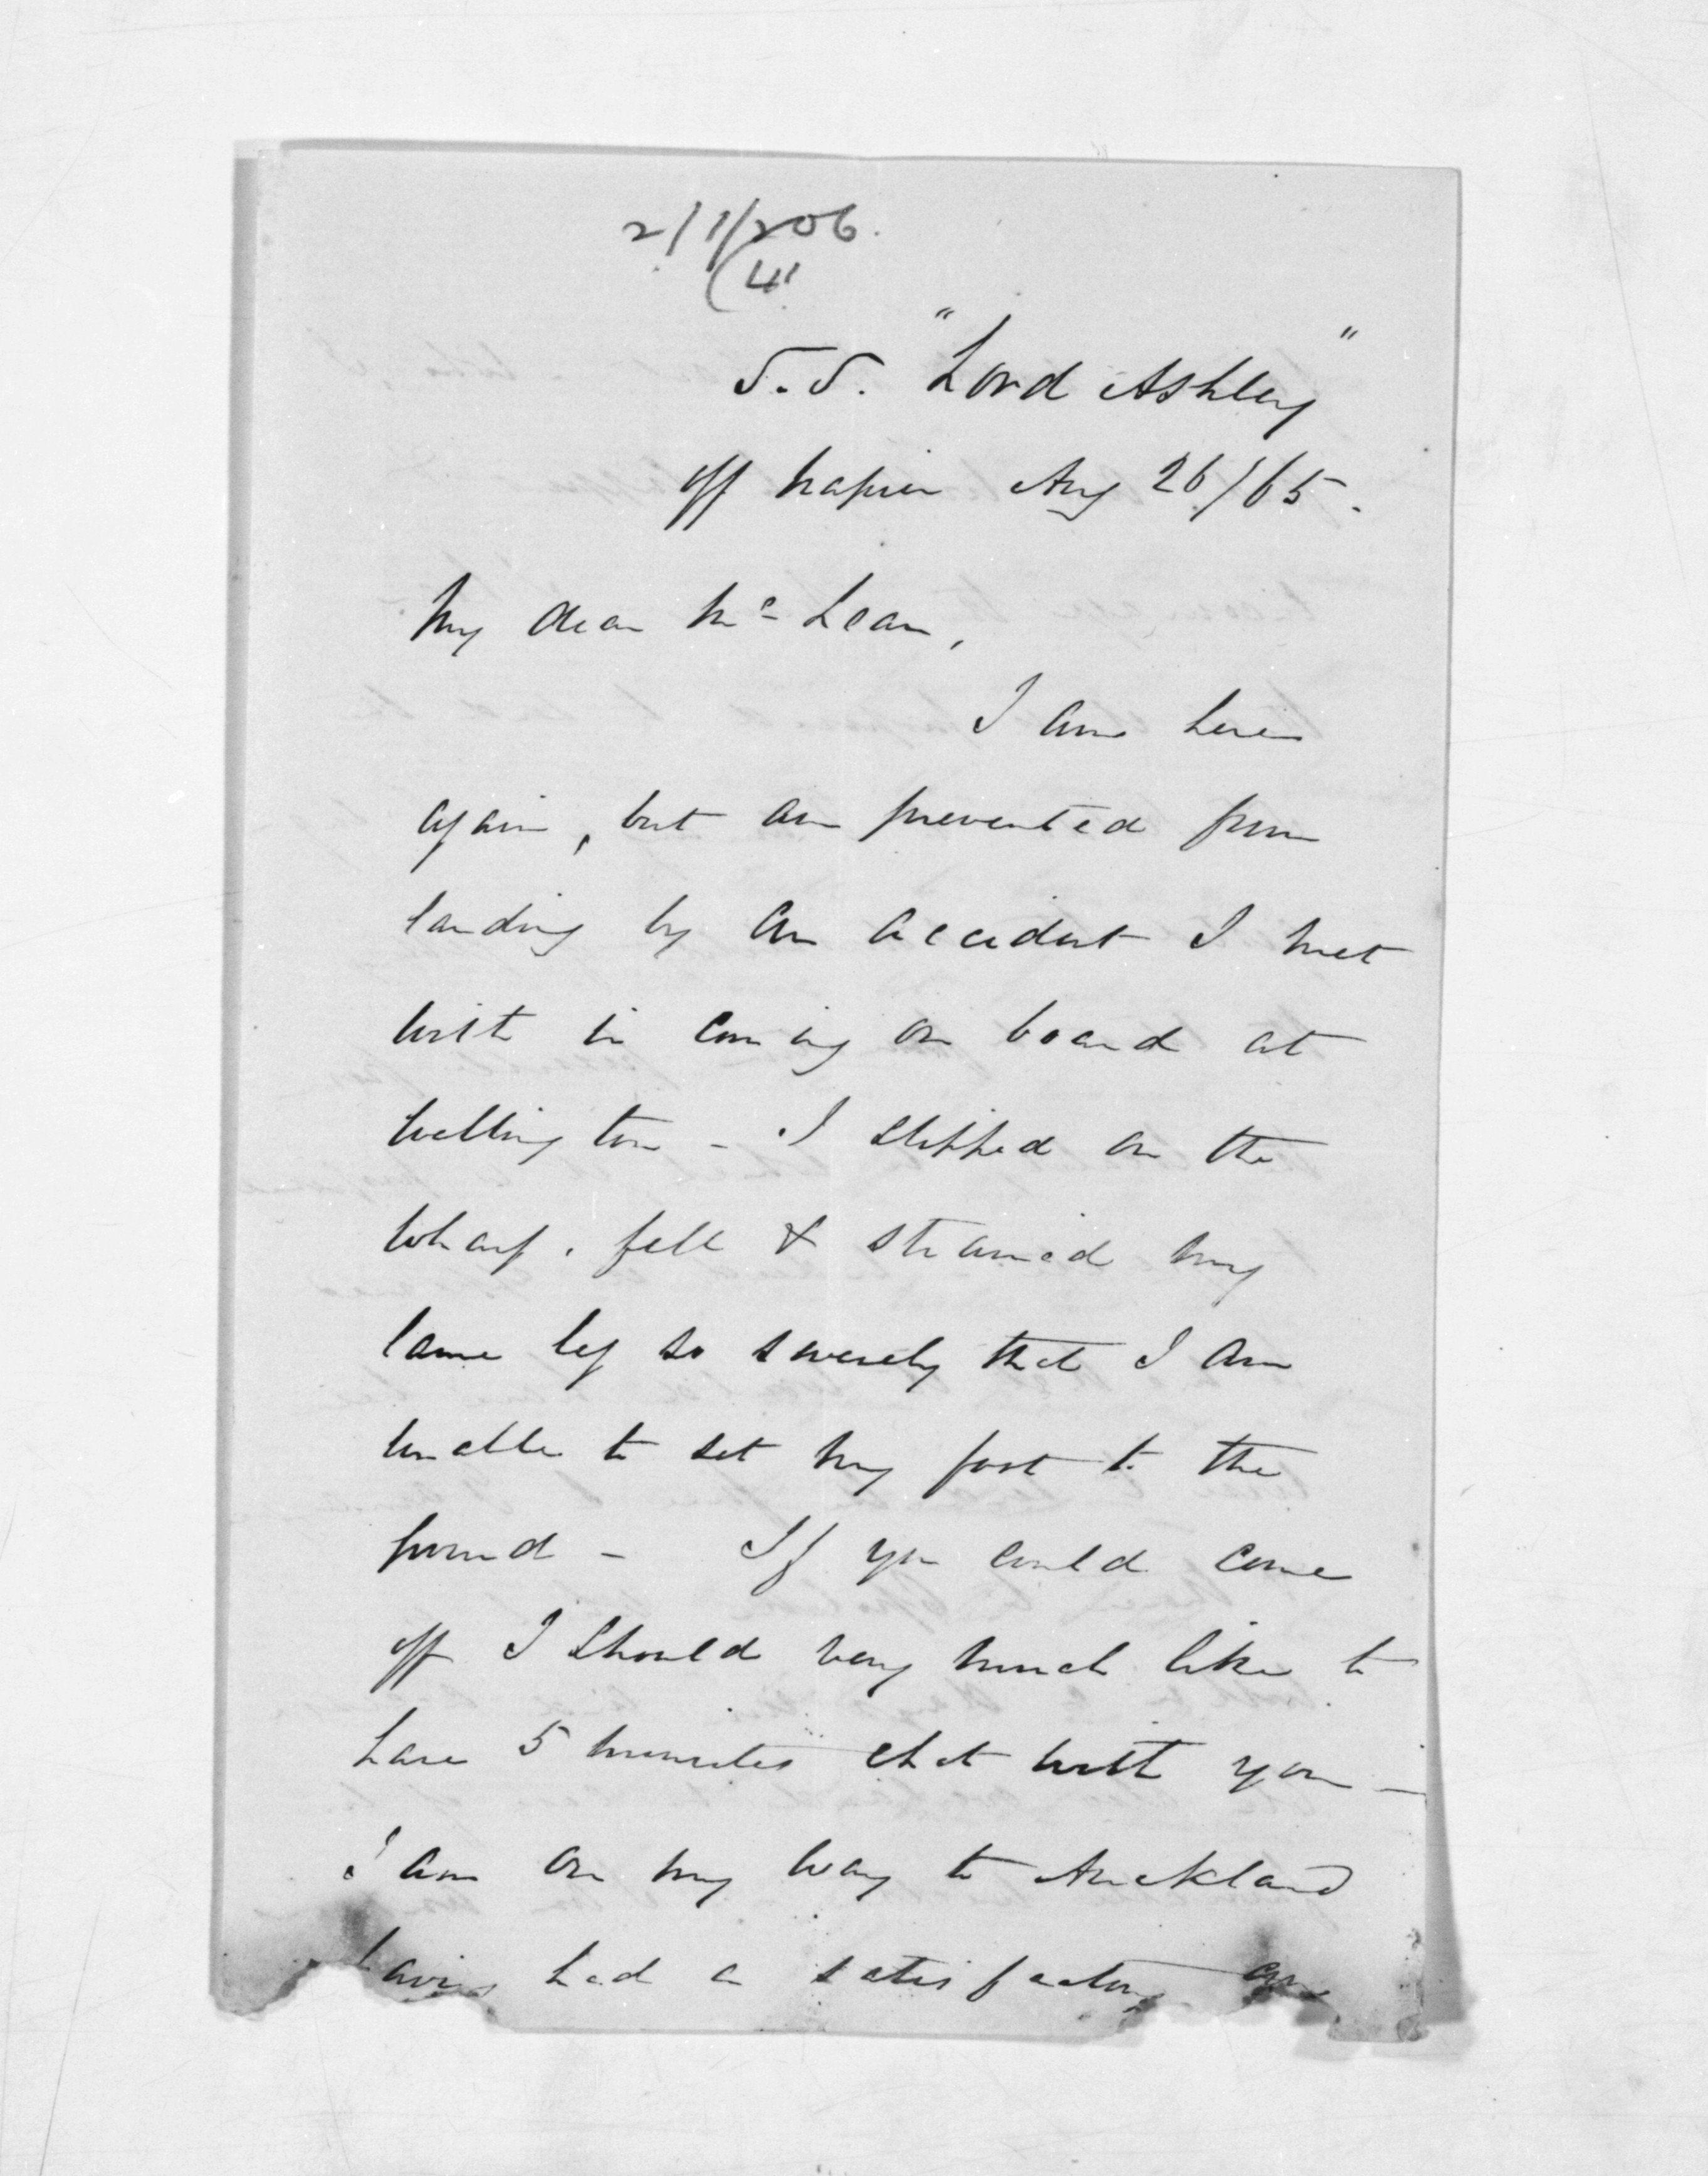 2/1/206.
(4
S.S. "Lord Ashley"
off Napier Aug 26/65.
My dear McLean,
I am here
again, but am prevented from
landing by an accident I met
with in coming on board at
Wellington - I slipped on the
Wharf, fell & strained my
lame leg so severely that I am
unable to set my foot to the
ground - If you could come
off I should very much like to
have 5 minutes chat with you -
I am on my way to Auckland
having had a satisfactory